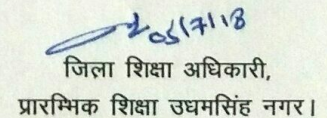 05/7/18
जिला शिक्षा अधिकारी,
प्रारम्भिक शिक्षा उधमसिंह नगर।